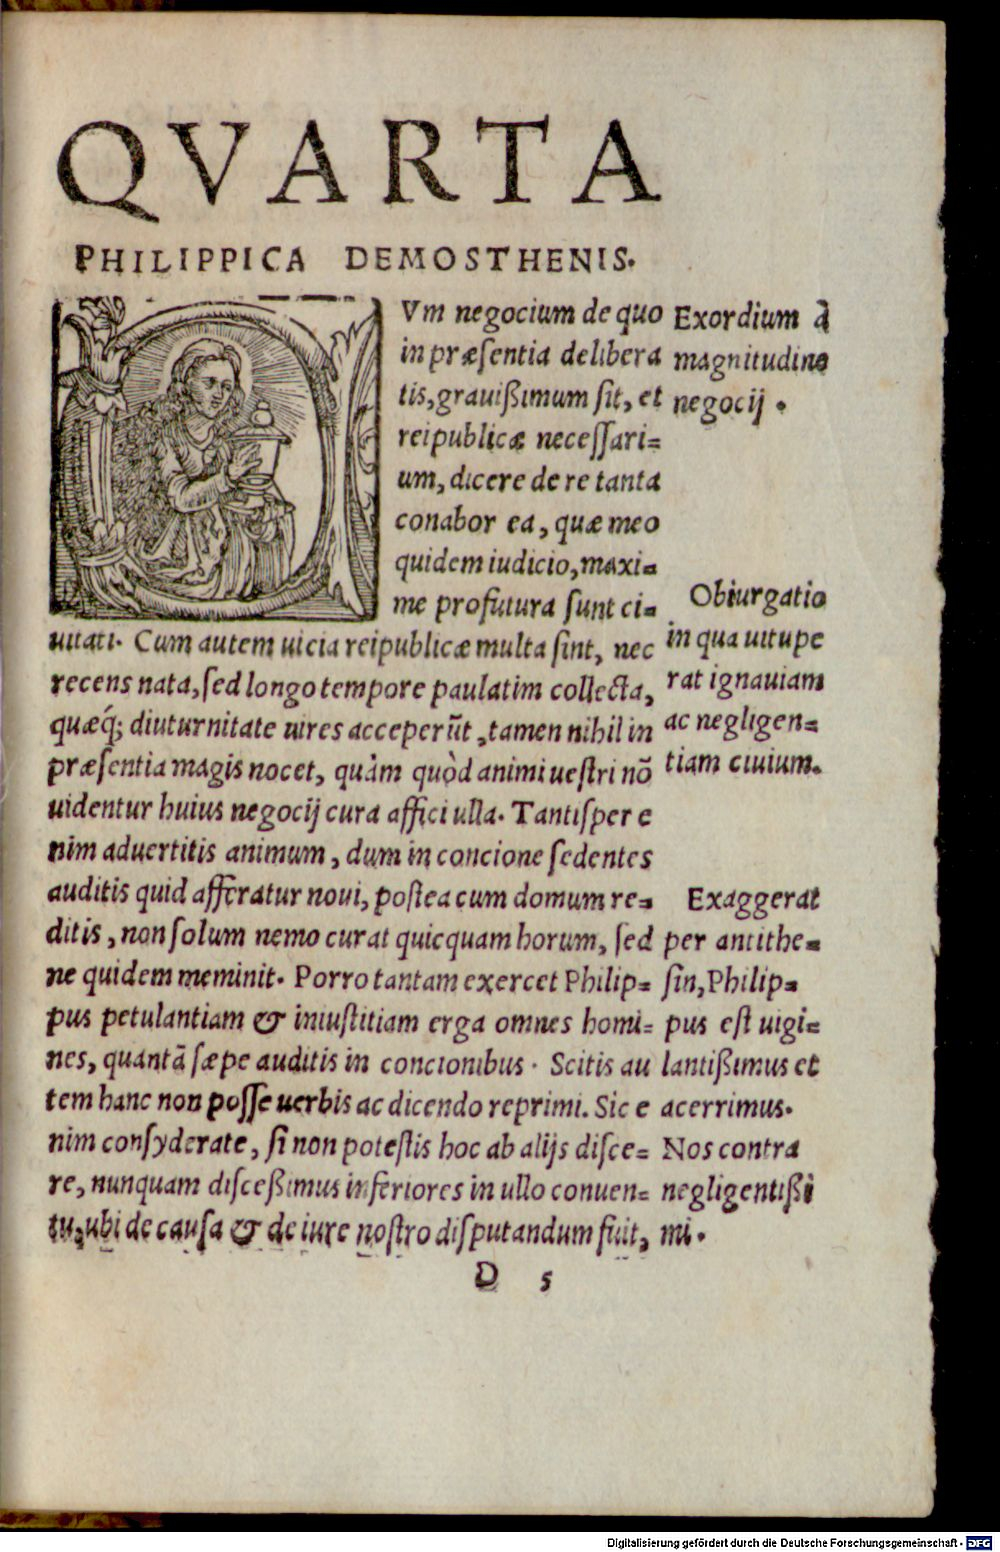 QVARTA
PHILIPPICA DEMOSTHENIS.
Vm negocium de quo
in præſentia delibera
tis, grauiſſimum ſit, et
reipublicæ neceſſari=
um, dicere de re tanta
conabor ea, quæ meo
quidem iudicio, maxi=
me profutura ſunt ci=
uitati. Cum autem uicia reipublicæ multa ſint, nec
recens nata, ſed longo tempore paulatim collecta,
quæq́; diuturnitate uires acceperũt, tamen nihil in
præſentia magis nocet, quàm quòd animi ueſtri nõ
uidentur huius negocij cura affici ulla. Tantiſper e
nim aduertitis animum, dum in concione ſedentes
auditis quid afferatur noui, poſtea cum domum re=
ditis, non ſolum nemo curat quicquam horum, ſed
ne quidem meminit. Porro tantam exercet Philip=
pus petulantiam & iniuſtitiam erga omnes homi=
nes, quantã ſæpe auditis in concionibus. Scitis au
tem hanc non poſſe uerbis ac dicendo reprimi. Sic e
nim conſyderate, ſi non poteſtis hoc ab alijs diſce=
re, nunquam diſceßimus inferiores in ullo conuen=
tu, ubi de cauſa & de iure noſtro diſputandum fuit,
Exordium à
magnitudine
negocij.
Obiurgatio
in qua uitupe
rat ignauiam
ac negligen=
tiam ciuium.
Exaggerat
per antithe=
ſin, Philip=
pus eſt uigi=
lantißimus et
acerrimus.
Nos contra
negligentißi
mi.
D 5
Digitalisierung gefördert durch die Deutsche Forschungsgemeinschaft - DFG